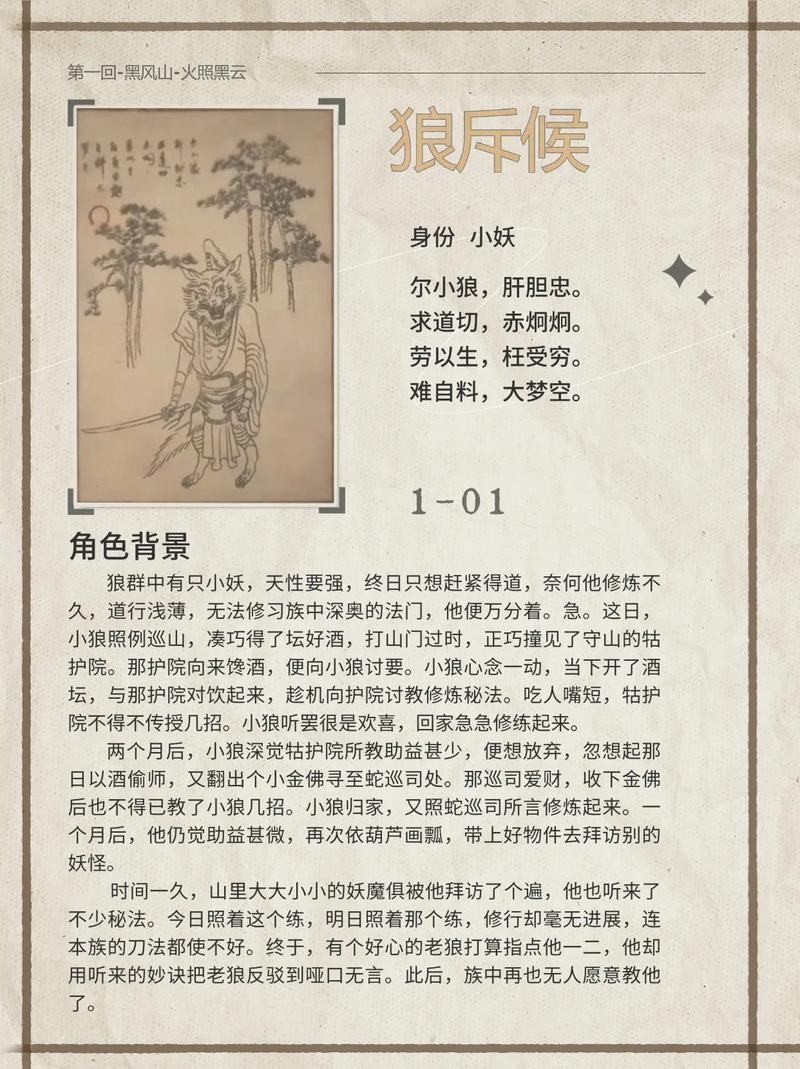 第一回-黑风山-火照黑云
狼斥候
身份 小妖
尔小狼，肝胆忠。
求道切，赤炯炯。
劳以生，枉受穷。
难自料，大梦空。
1-01
角色背景
狼群中有只小妖，天性要强，终日只想赶紧得道，奈何他修炼不
久，道行浅薄，无法修习族中深奥的法门，他便万分着。急。这日，
小狼照例巡山，凑巧得了坛好酒，打山门过时，正巧撞见了守山的牯
护院。那护院向来馋酒，便向小狼讨要。小狼心念一动，当下开了酒
坛，与那护院对饮起来，趁机向护院讨教修炼秘法。吃人嘴短，牯护
院不得不传授几招。小狼听罢很是欢喜，回家急急修练起来。
两个月后，小狼深觉牯护院所教助益甚少，便想放弃，忽想起那
日以酒偷师，又翻出个小金佛寻至蛇巡司处。那巡司爱财，收下金佛
后也不得已教了小狼几招。小狼归家，又照蛇巡司所言修炼起来。一
个月后，他仍觉助益甚微，再次依葫芦画瓢，带上好物件去拜访别的
妖怪。
时间一久，山里大大小小的妖魔俱被他拜访了个遍，他也听来了
不少秘法。今日照着这个练，明日照着那个练，修行却毫无进展，连
本族的刀法都使不好。终于，有个好心的老狼打算指点他一二，他却
用听来的妙诀把老狼反驳到哑口无言。此后，族中再也无人愿意教他
了。